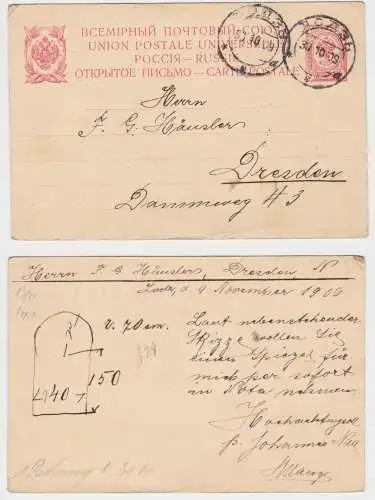 ВСЕМІРНЫЙ ПОЧТОВЫЙ СОЮЗЪ
UNION POSTALE UNIVERSELLE
РОССІЯ — RUSSIE
ОТКРЫТОЕ ПИСЬМО — CARTE POSTALE
ЛОДЗЬ
30 10 09
ЛОДЗЬ
30 10 09
Herrn
F. G. Häusler
Dresden
Dammweg 43
Herrn F. G. Häusler, Dresden, N
Lodz, d. 4 November 1909
v. 70 cm.
150
40
Laut nebenstehender
Skizze wollen Sie
einen Spiegel für
mich per sofort
in Nota nehmen.
Hochachtungsvoll
p. Johannes